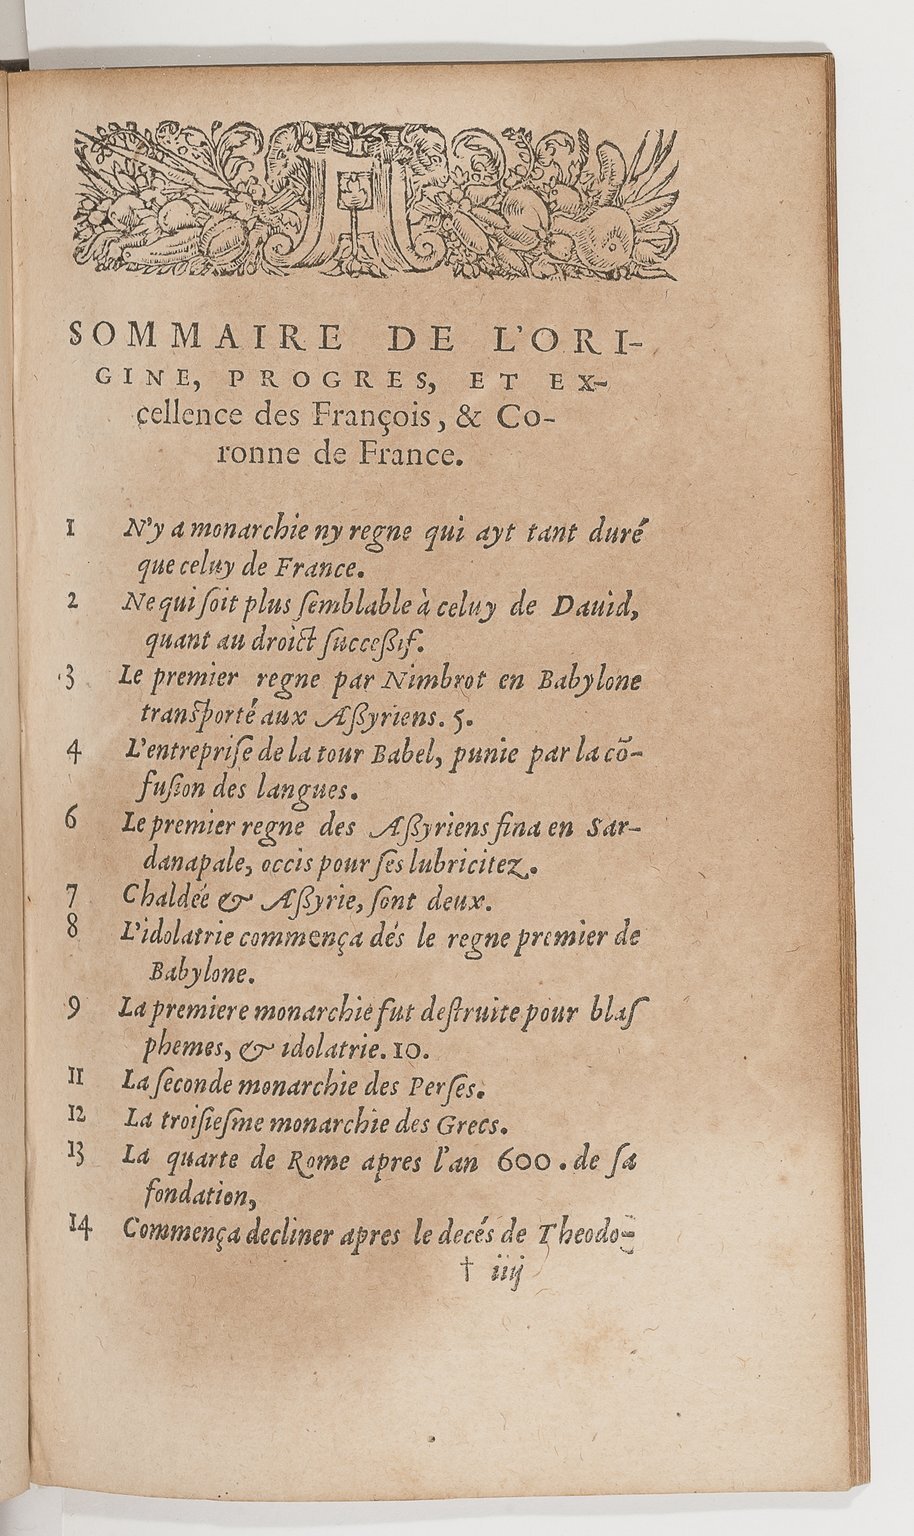 SOMMAIRE DE L'ORI-
GINE, PROGRES, ET EX-
cellence des François, & Co-
ronne de France.
1 N'y a monarchie ny regne qui ayt tant duré
que celuy de France.
2 Ne qui ſoit plus ſemblable à celuy de Dauid,
quant au droict ſucceßif.
3 Le premier regne par Nimbrot en Babylone
tranſporté aux Aßyriens. 5.
4 L'entrepriſe de la tour Babel, punie par la cõ-
fuſion des langues.
6 Le premier regne des Aßyriens fina en Sar-
danapale, occis pour ſes lubricitez.
7 Chaldée & Aßyrie, ſont deux.
8 L'idolatrie commença dés le regne premier de
Babylone.
9 La premiere monarchie fut deſtruite pour blaſ
phemes, & idolatrie. 10.
11 La ſeconde monarchie des Perſes.
12 La troiſieſme monarchie des Grecs.
13 La quarte de Rome apres l'an 600. de ſa
fondation,
14 Commença decliner apres le decés de Theodo-
† iiij